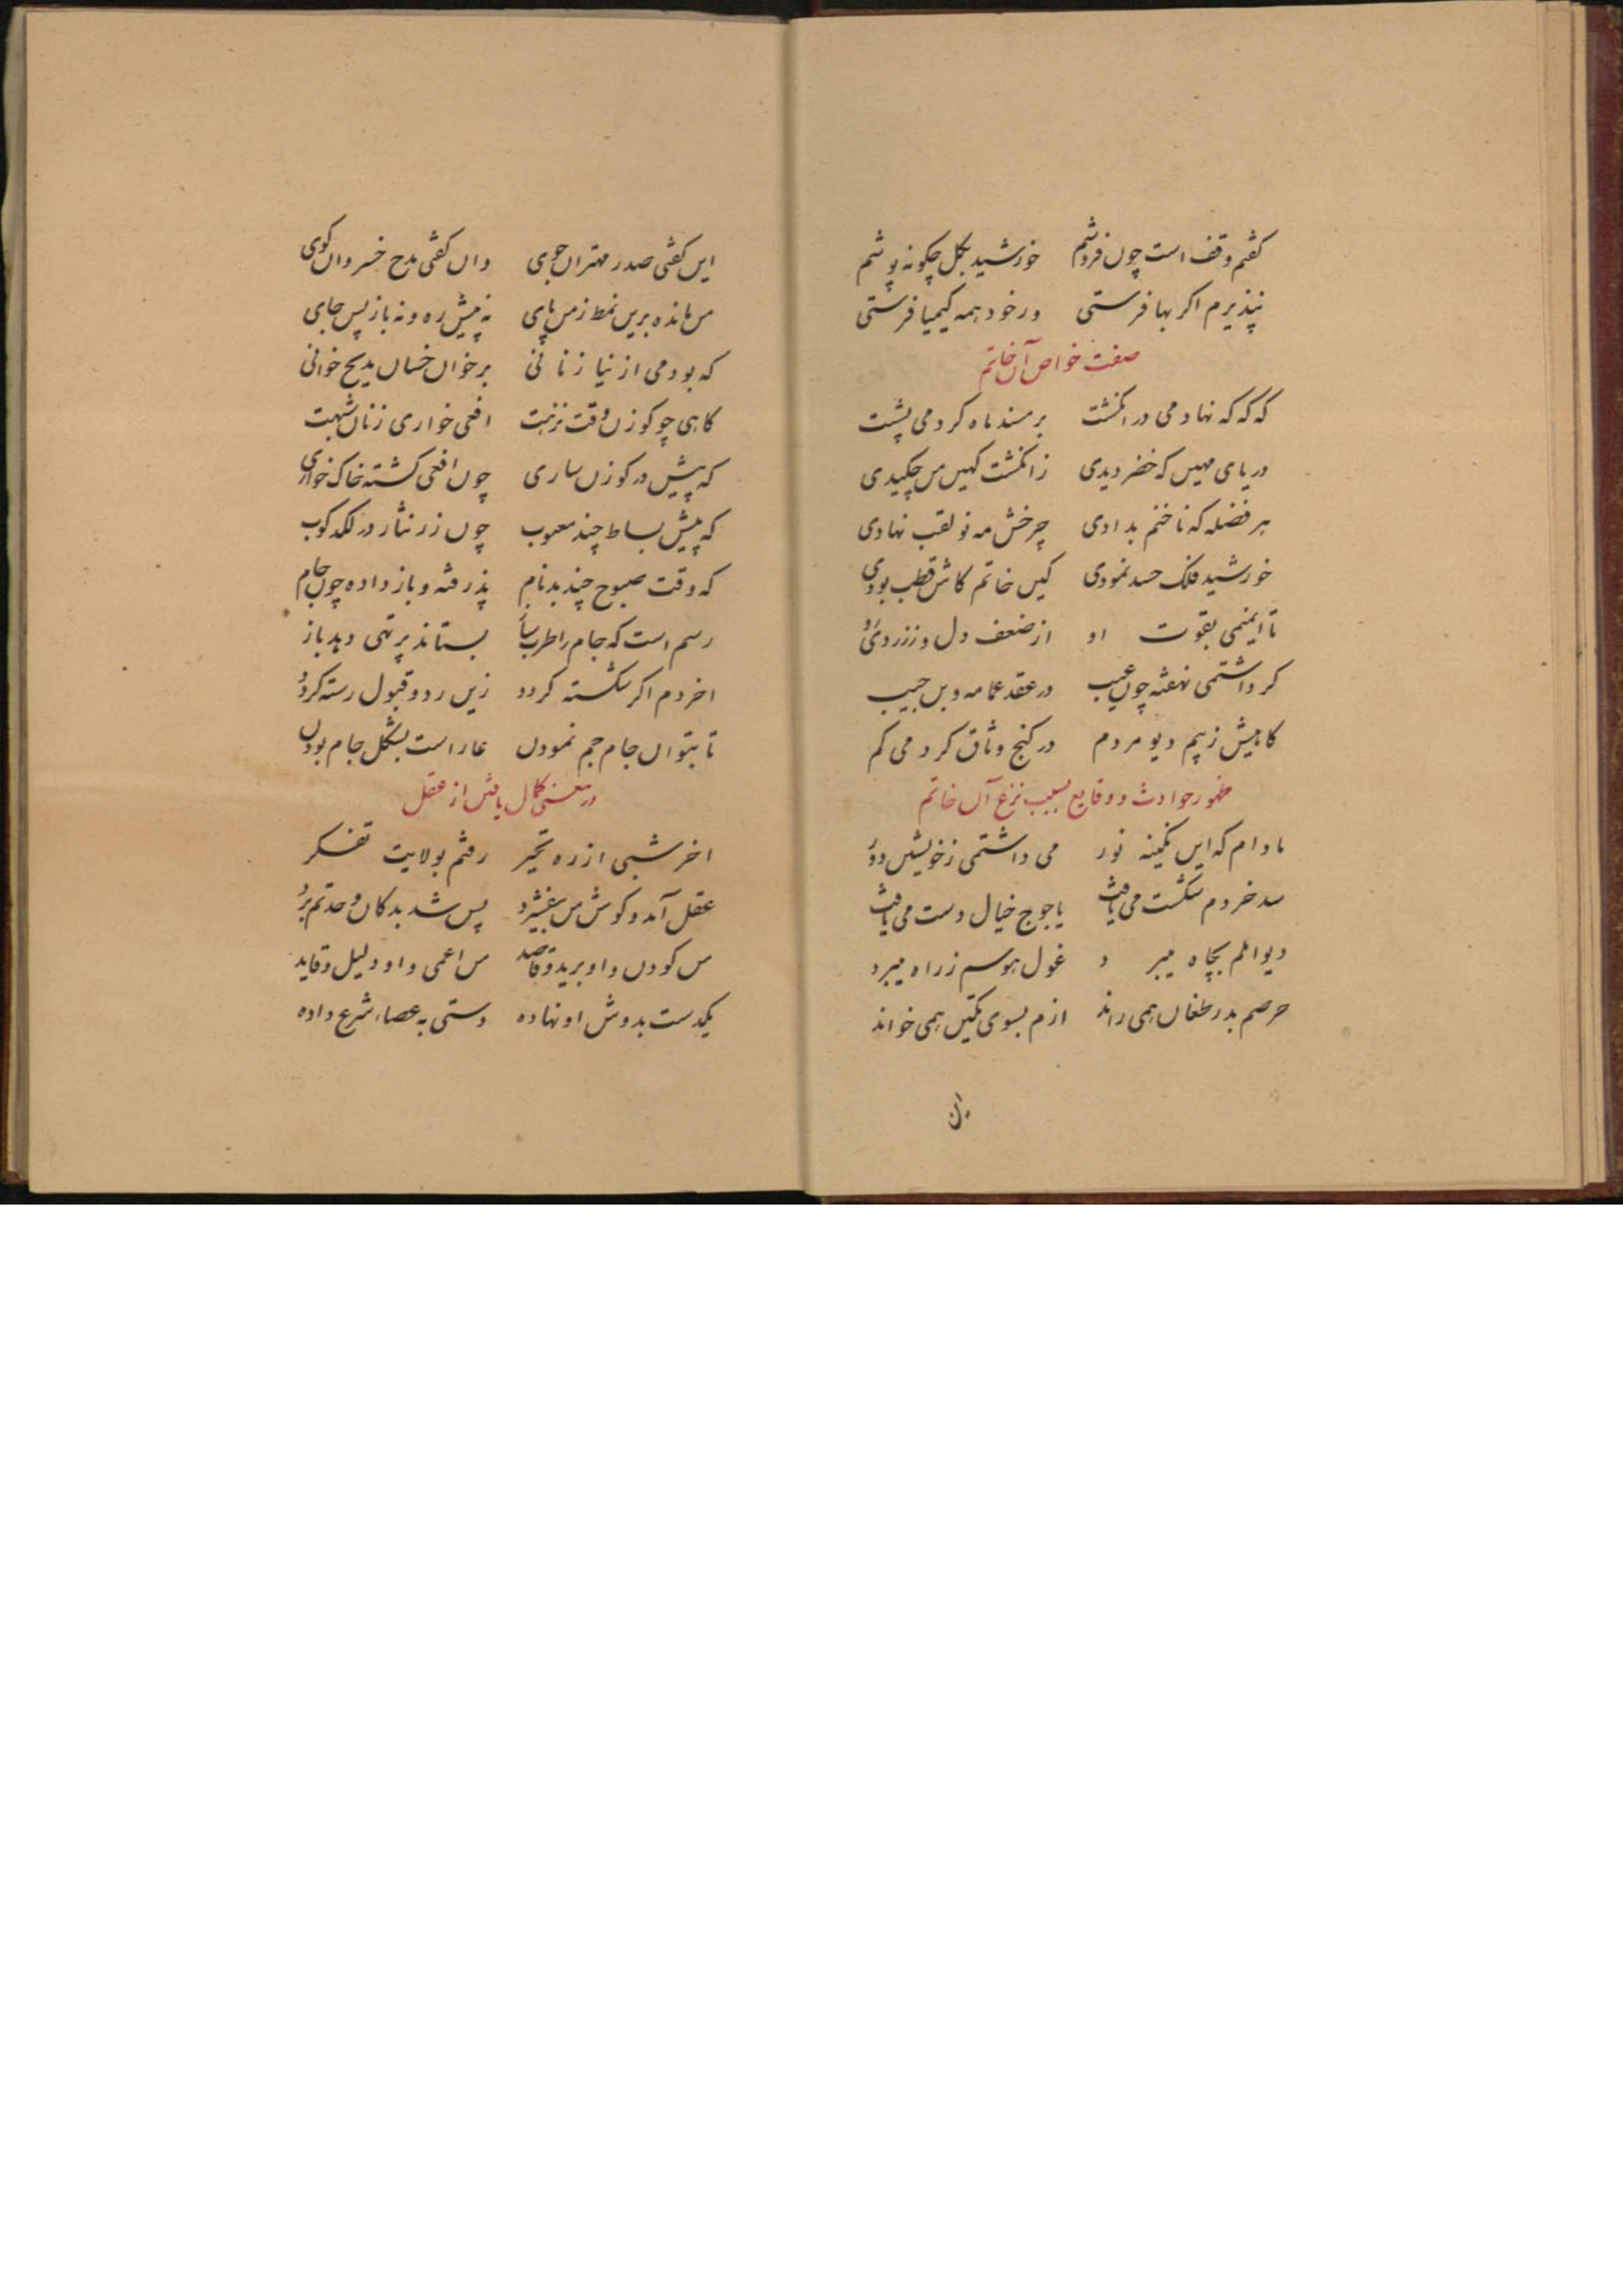 کفتم وقف است چون فروشم خورشید بکل چکونه پوشم
نپذیرم اکر بها فرستی ور خود همه کیمیا فرستی
صفت خواص آن خاتم
که که که نهادمی در انکشت بر مسند ماه کردمی پشت
دریای مهین که خضر دیدی ز انکشت کهین من چکیدی
هر فضله که ناخنم بدادی چرخش مه نو لقب نهادی
خورشید فلک حسد نمودی کین خاتم کاش قطب بودی
تا ایمنمی بقوت او از ضعف دل و ز زردی رو
کر داشتمی نهفته چون عیب در عقد عمامه و بن جیب
کاهیش ز بیم دیو مردم در کنج وثاق کردمی کم
ظهور حوادث و وقایع بسبب نزع آن خاتم
مادام که این نکینه نور می داشتمی ز خویشتن دور
سد خردم شکست می یافت یاجوج خیال دست می یافت
دیو املم بچاه میبرد غول هوسم ز راه میبرد
حرصم بدر طغان همی راند ازم بسوی تکین همی خواند
این کفتی صدر مهتران جوی وان کفتی مدح خسروان کوی
من مانده برین نمط زمن پای نه پیش ره و نه باز پس جای
که بودمی از نیاز نانی بر خوان خسان مدیح خوانی
کاهی چو کوزن وقت نزهت افعی خواری زنان شهبت
که پیش در کوزن ساری چون افعی کشته خاک خواری
که پیش بساط چند معیوب چون زر نثار در لکدکوب
که وقت صبوح چند بدنام پذرفته و باز داده چون جام
رسم است که جام را طرب ساز بستاند پر تهی دهد باز
اخر دم اکر شکسته کردد زین رد و قبول رسته کردد
تا بتوان جام جم نمودن عار است بشکل جام بودن
در معنی کمال یافتن از عقل
اخر شبی از ره تحیر رفتم بولایت تفکر
عقل آمد و کوش من بیفشرد پس شد بدکان وحدتم برد
من کودن و او برید و قاصد من اعمی و او دلیل و قاید
یکدست بدوش او نهاده دستی به عصاء شرع داده